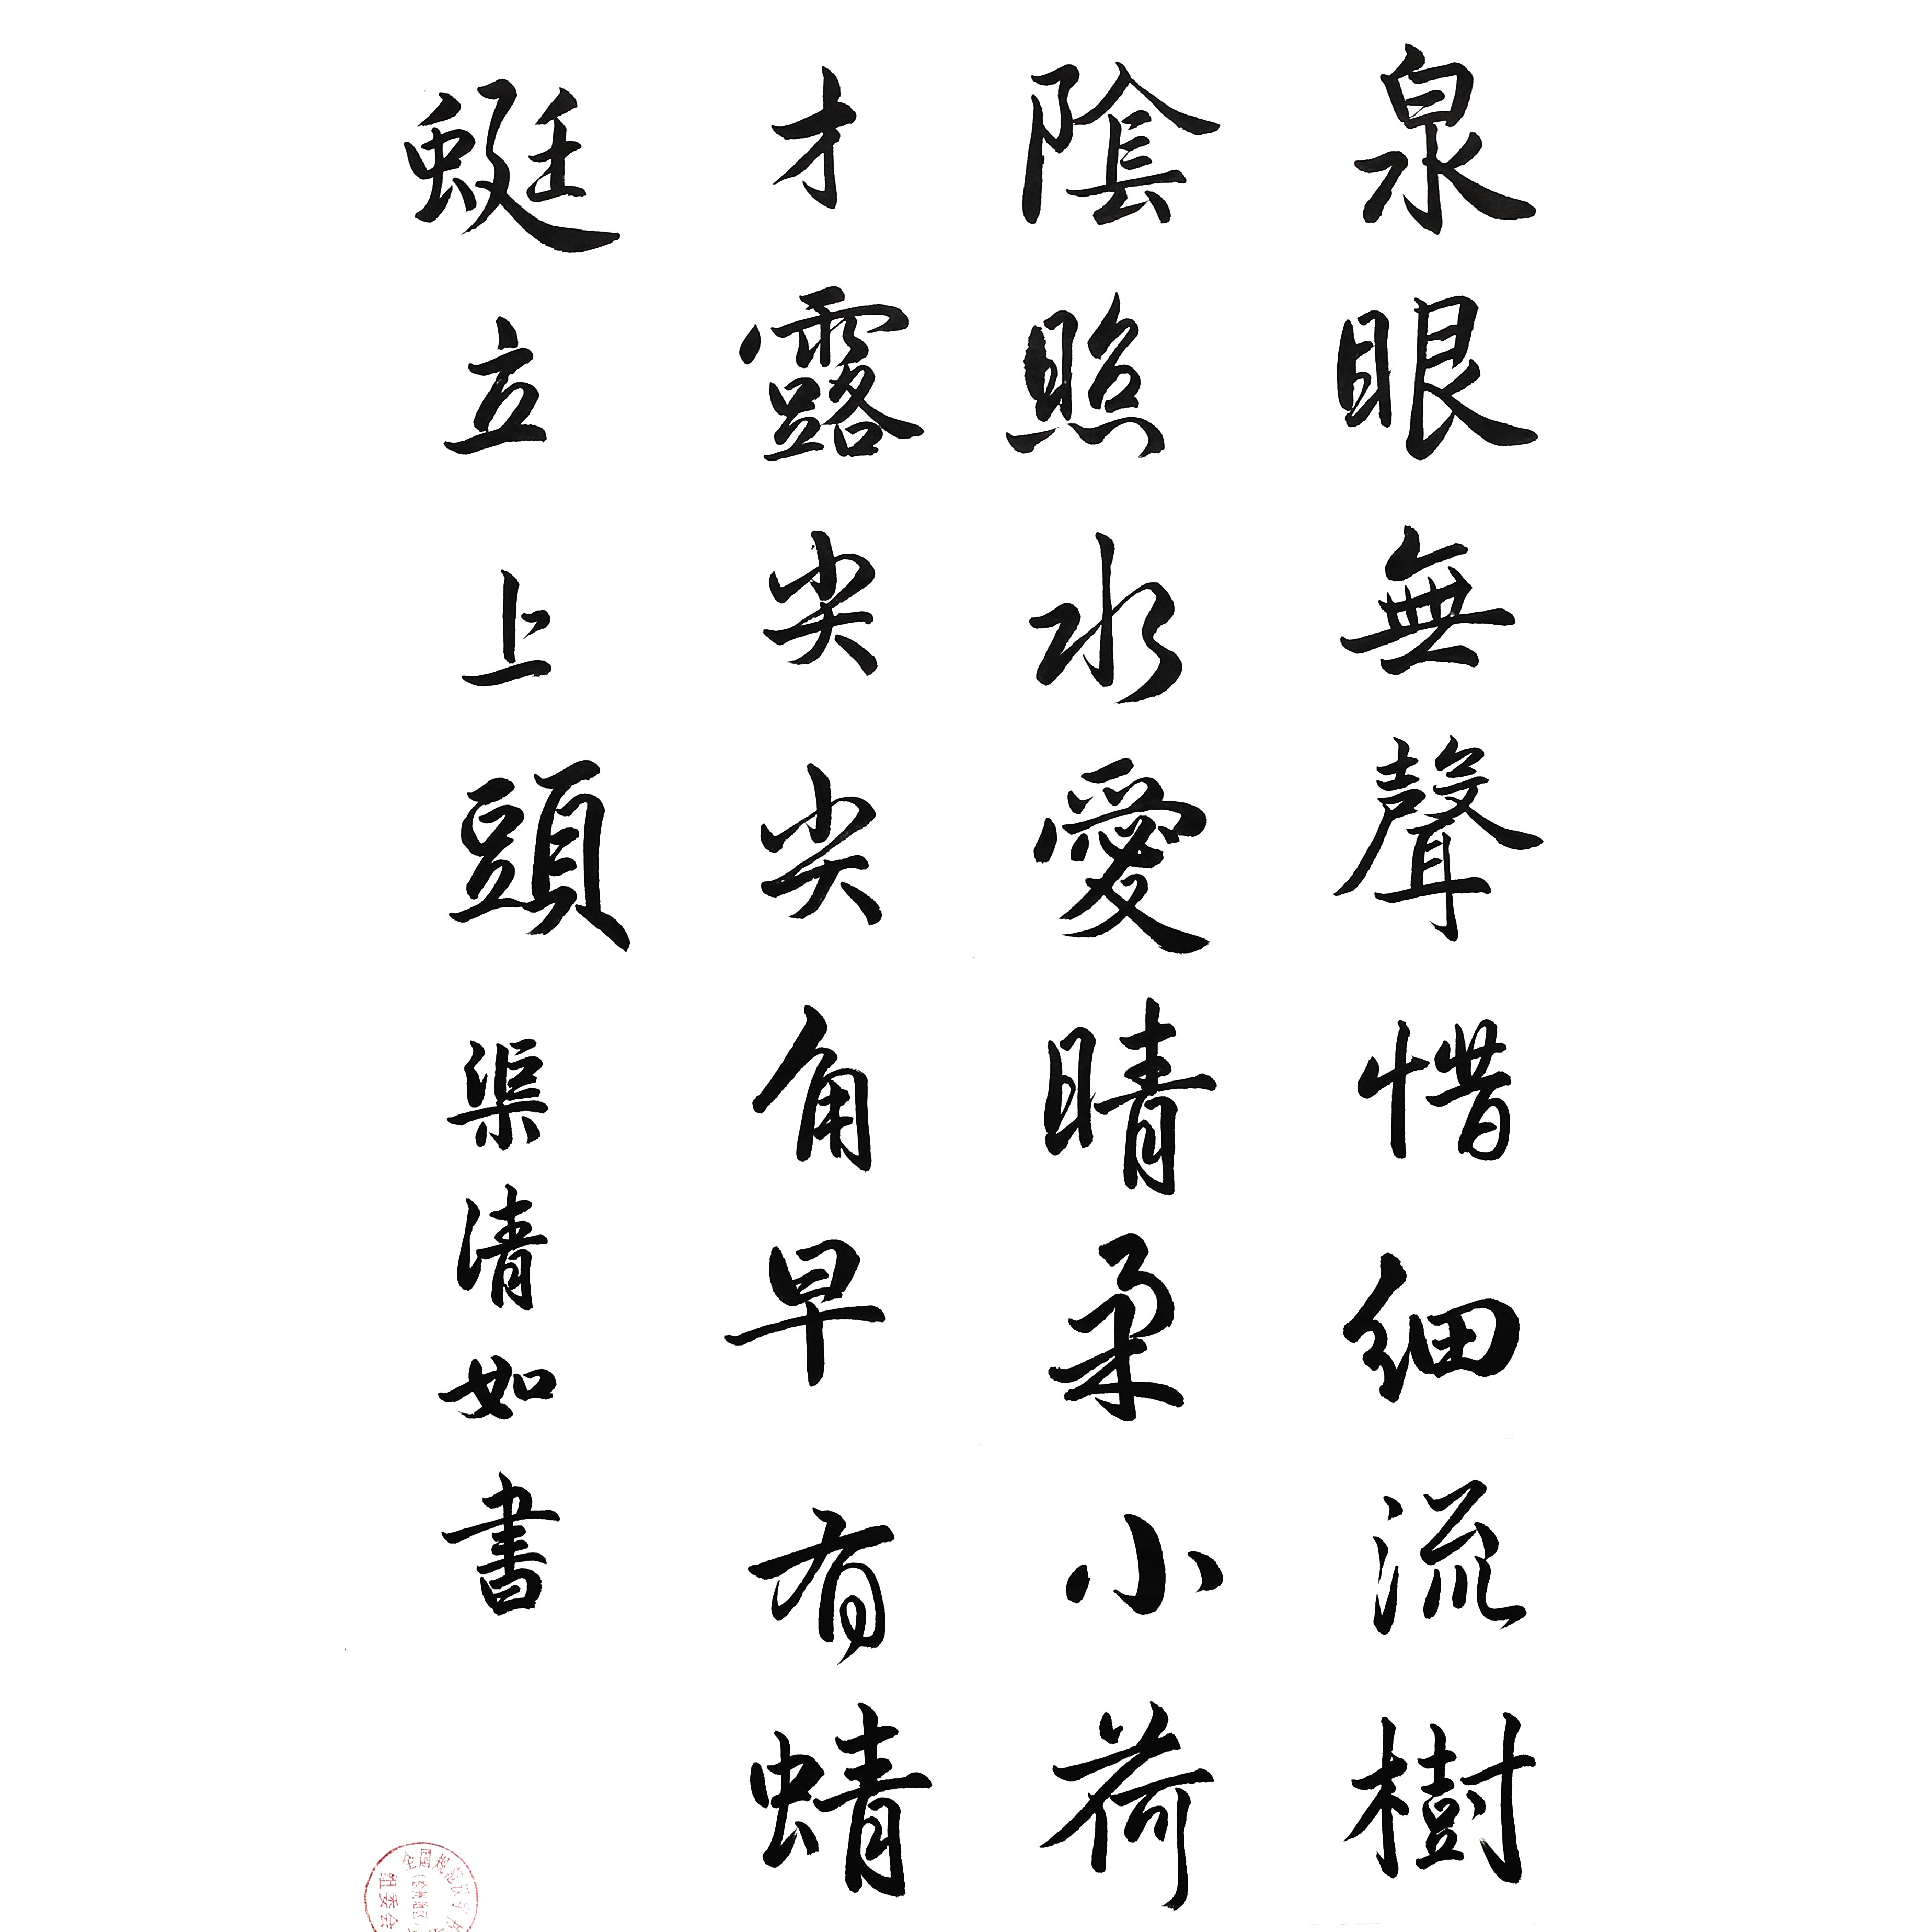 泉眼無聲惜細流樹
陰照水愛晴柔小荷
才露尖尖角早有蜻
蜓立上頭 渠清如書
全国
组委会